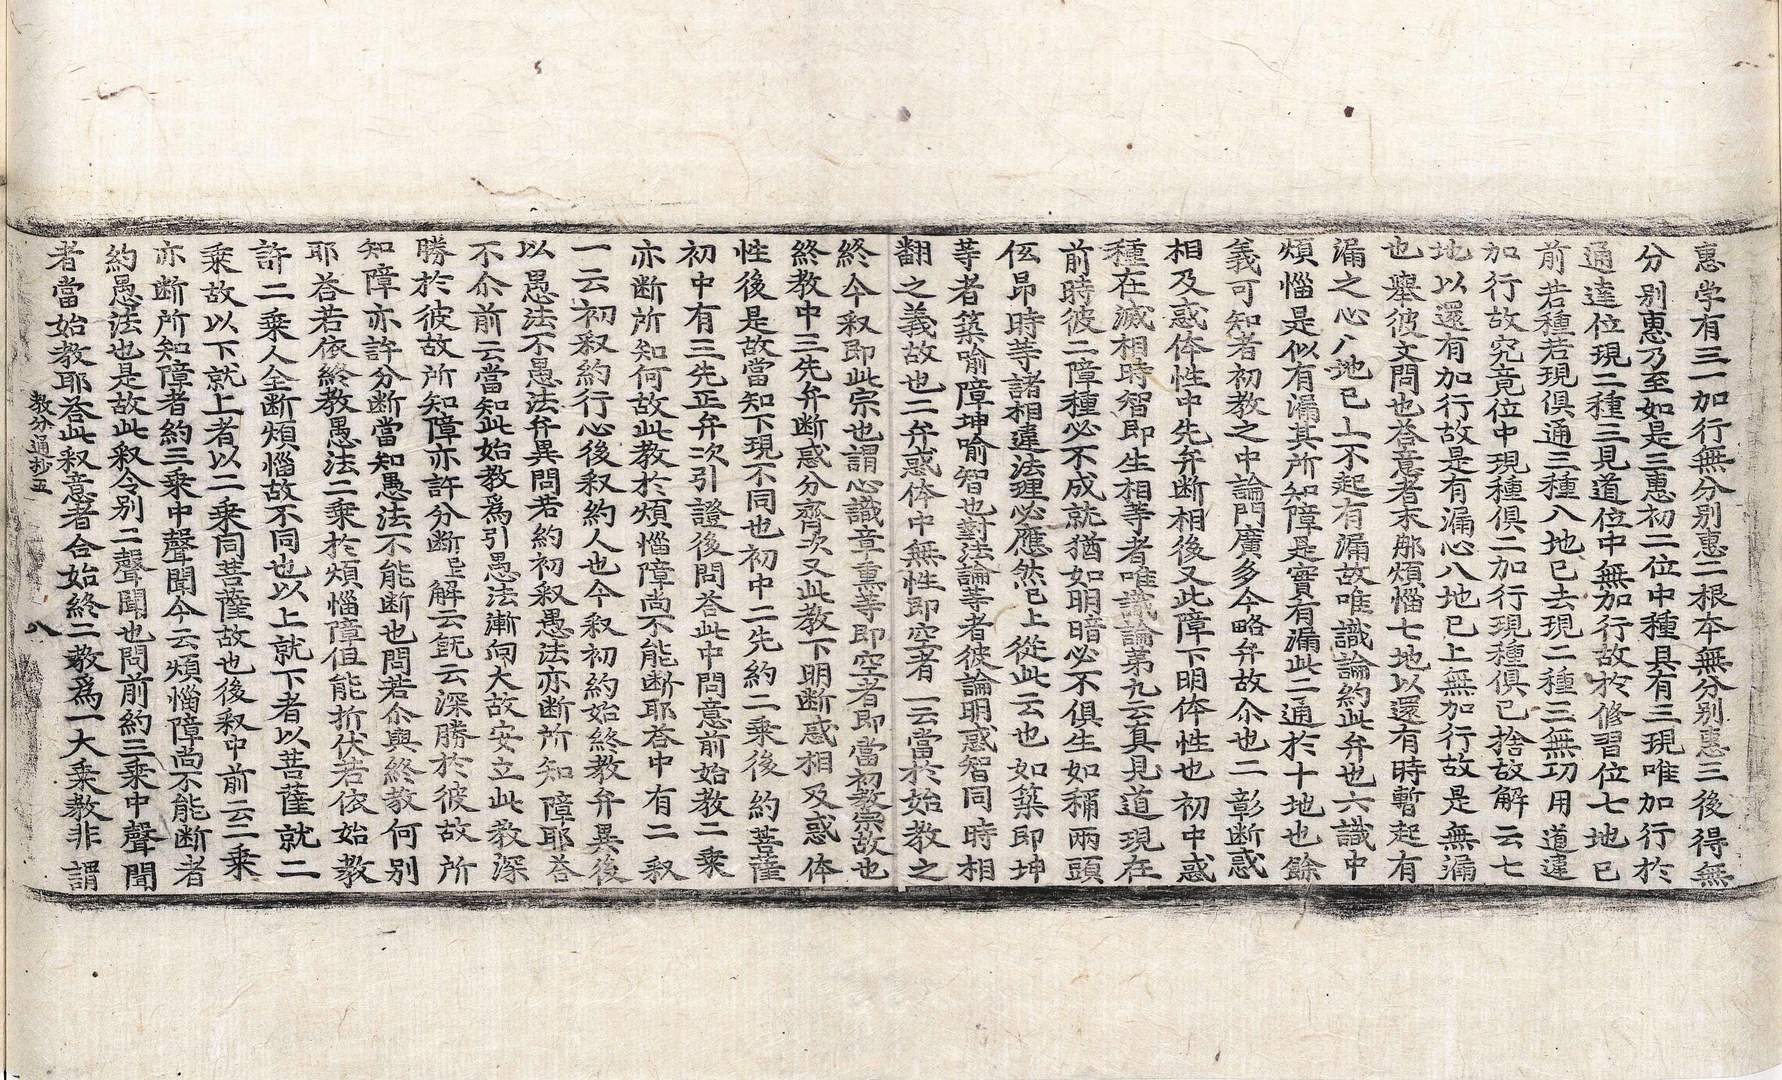 惠学有三一加行無分别惠二根本無分别惠三後得無
分别惠乃至如是三惠初二位中種具有三現唯加行於
通達位現二種三見道位中無加行故於修習位七地已
前若種若現俱通三種八地已去現二種三無功用道違
加行故究竟位中現種俱二加行現種俱已捨故解云七
地以還有加行故是有漏心八地已上無加行故是無漏
也舉彼文問也荅意者末那煩惱七地以還有時暫起有
漏之心八地已上不起有漏故唯識論約此弁也六識中
煩惱是似有漏其所知障是實有漏此二通於十地也餘
義可知者初教之中論門廣多今略弁故尒也二彰断惑
相及惑体性中先弁断相後又此障下明体性也初中惑
種在滅相時智即生相等者唯識論苐九云真見道現在
前時彼二障種必不成就猶如明暗必不俱生如秤兩頭
伍昂時等諸相違法理必應然已上從此云也如築即坤
等者築喻障坤喻智也對法論等者彼論明惑智同時相
翻之義故也二弁惑体中無性即空者一云當於始教之
終今叙即此宗也謂心識章熏等即空者即當初教宗故也
終教中三先弁断惑分齊次又此教下明断惑相及惑体
性後是故當知下現不同也初中二先約二乗後約菩薩
初中有三先正弁次引證後問荅此中問意前始教二乗
亦断所知何故此教於煩惱障尚不能断耶荅中有二叙
一云初叙約行心後叙約人也今叙初約始終教弁異後
以愚法不愚法弁異問若約初叙愚法亦断所知障耶荅
不尒前云當知此始教爲引愚法漸向大故安立此教深
勝於彼故所知障亦許分断是解云旣云深勝於彼故所
知障亦許分断當知愚法不能断也問若尒與終教何别
耶荅若依終教愚法二乗於煩惱障但能折伏若依始教
許二乗人全断煩惱故不同也以上就下者以菩薩就二
乗故以下就上者以二乗同菩薩故也後叙中前云二乗
亦断所知障者約三乗中聲聞今云煩惱障尚不能断者
約愚法也是故此叙令别二聲聞也問前約三乗中聲聞
者當始教耶荅此叙意者合始終二教爲一大乗教非謂
教分通抄五　八